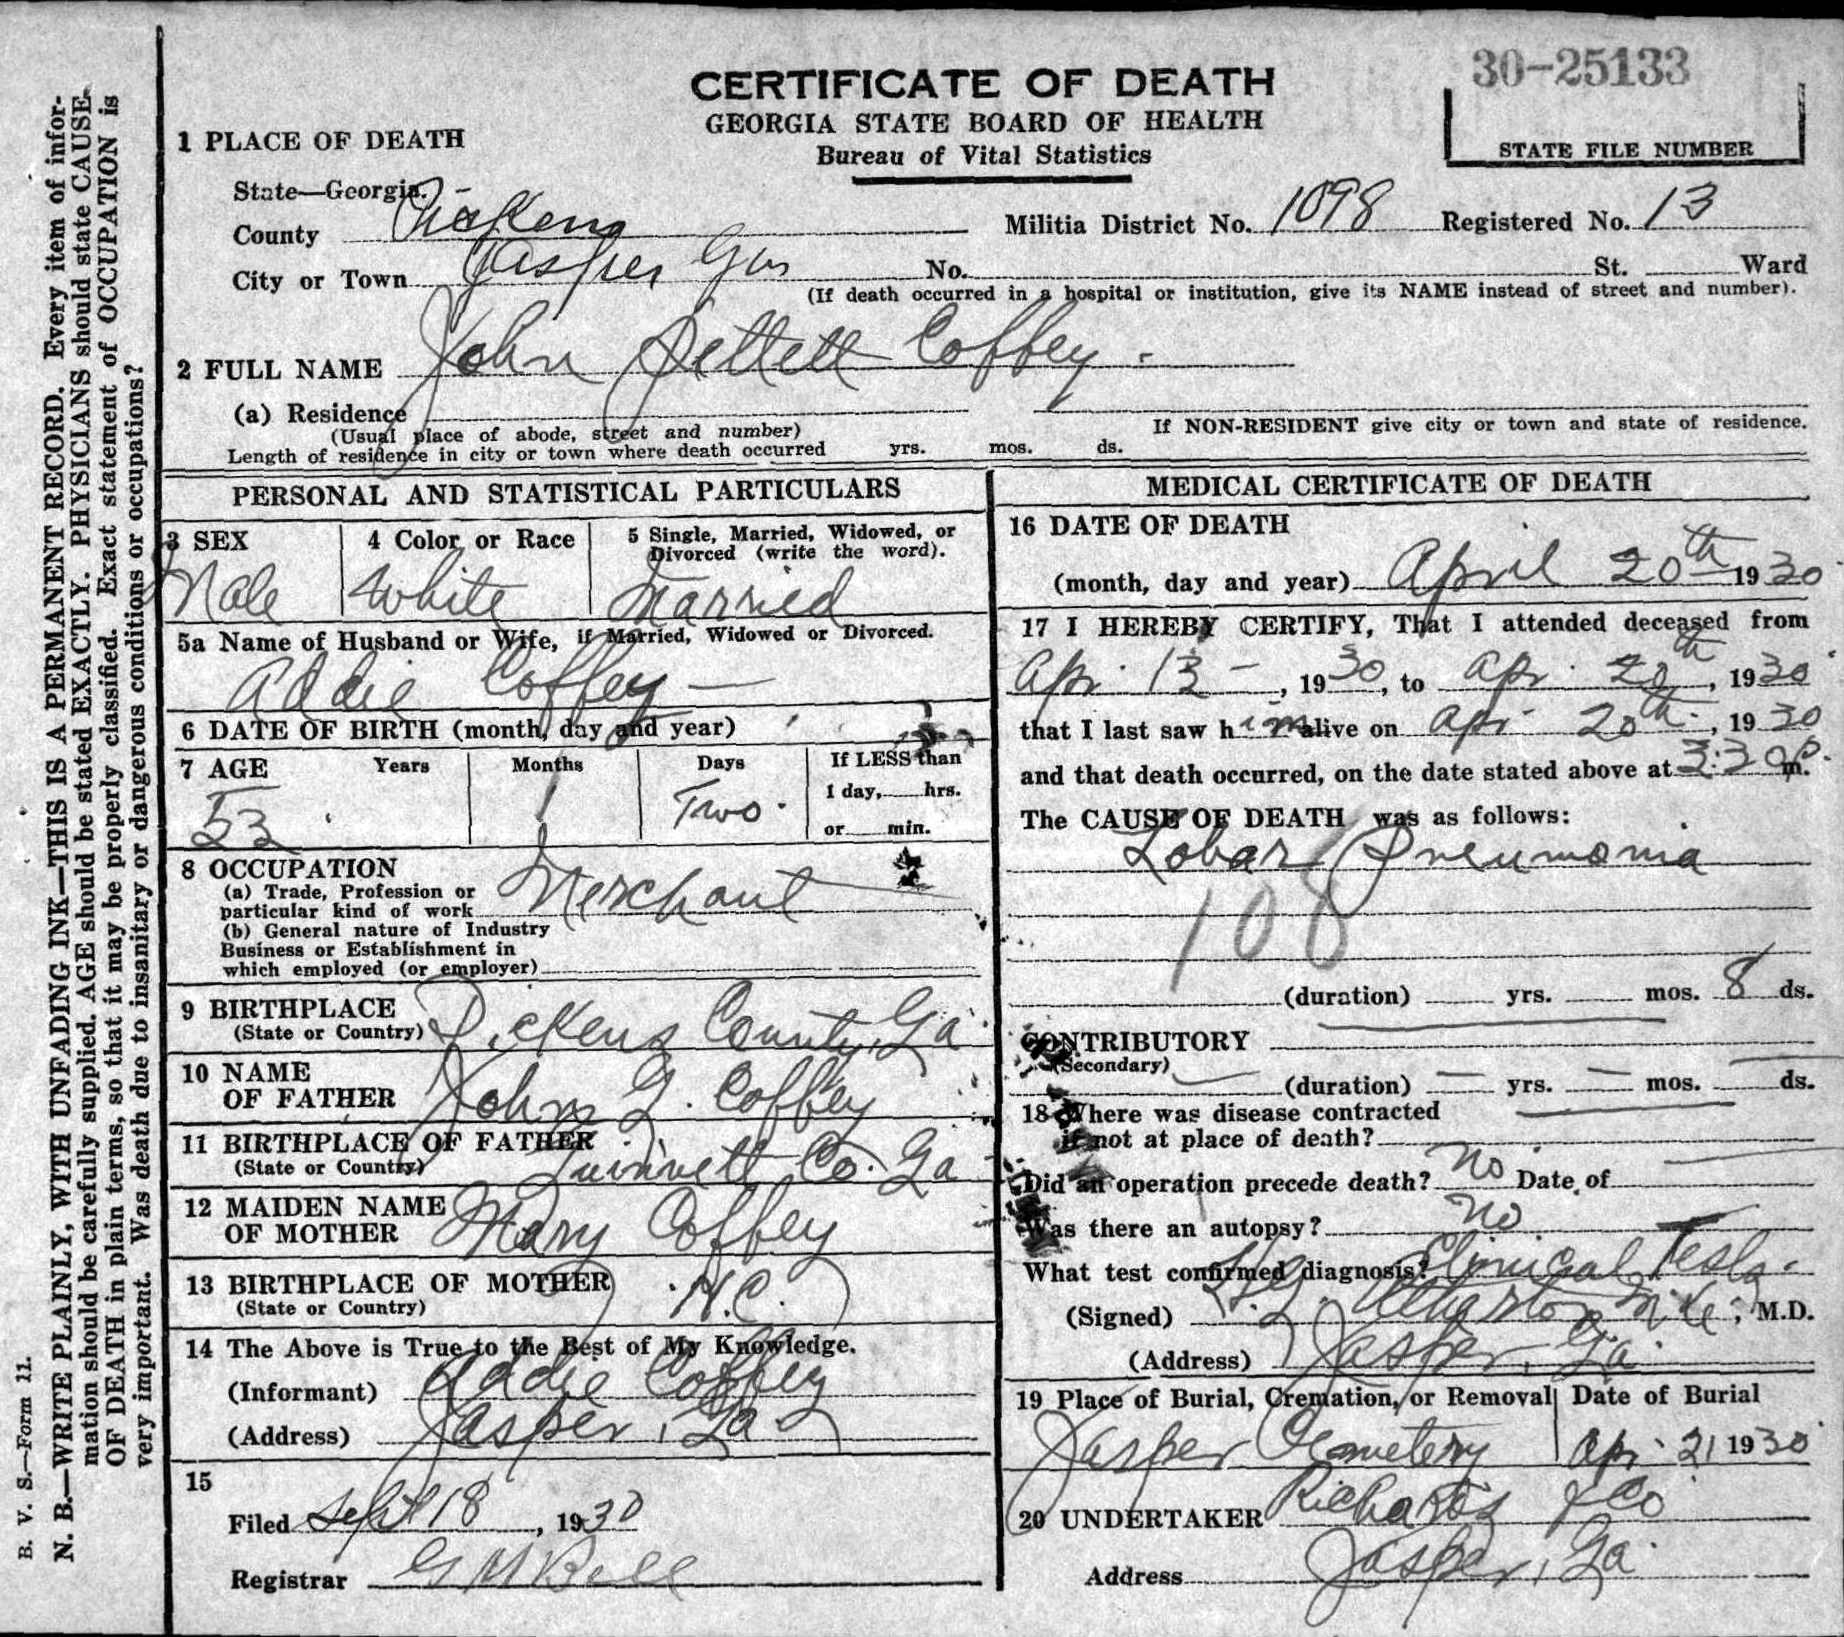 30-25133
CERTIFICATE OF DEATH
GEORGIA STATE BOARD OF HEALTH
Bureau of Vital Statistics
STATE FILE NUMBER
1 PLACE OF DEATH
State—Georgia.
County Pickens Militia District No. 1098 Registered No. 13
City or Town Jasper Ga No. St. Ward
(If death occurred in a hospital or institution, give its NAME instead of street and number).
2 FULL NAME John Coffey.
(a) Residence
(Usual place of abode, street and number) If NON-RESIDENT give city or town and state of residence.
Length of residence in city or town where death occurred yrs. mos. ds.
PERSONAL AND STATISTICAL PARTICULARS
3 SEX 4 Color or Race 5 Single, Married, Widowed, or Divorced (write the word).
Male White Married
5a Name of Husband or Wife, if Married, Widowed or Divorced.
Addie Coffey —
6 DATE OF BIRTH (month, day and year)
7 AGE Years Months Days If LESS than
53 1 Two. 1 day, hrs.
or min.
8 OCCUPATION
(a) Trade, Profession or
particular kind of work Merchant
(b) General nature of Industry
Business or Establishment in
which employed (or employer)
9 BIRTHPLACE
(State or Country) Pickens County, Ga.
10 NAME
OF FATHER John G. Coffey
11 BIRTHPLACE OF FATHER
(State or Country) Gwinnett Co. Ga
12 MAIDEN NAME
OF MOTHER Mary Coffey
13 BIRTHPLACE OF MOTHER
(State or Country) N.C.
14 The Above is True to the Best of My Knowledge.
(Informant) Addie Coffey
(Address) Jasper, Ga.
15
Filed Sept 18, 1930
Registrar G M Bell
MEDICAL CERTIFICATE OF DEATH
16 DATE OF DEATH
(month, day and year) April 20th 1930
17 I HEREBY CERTIFY, That I attended deceased from
Apr. 13 —, 1930, to Apr. 20th, 1930
that I last saw him alive on Apr. 20th., 1930
and that death occurred, on the date stated above at 3:30 P. m.
The CAUSE OF DEATH was as follows:
Lobar Pneumonia
108
(duration) yrs. mos. 8 ds.
CONTRIBUTORY
(Secondary)
(duration) — yrs. — mos. — ds.
18 Where was disease contracted
if not at place of death?
Did an operation precede death? No. Date of
Was there an autopsy? No
What test confirmed diagnosis? Clinical Tests.
(Signed) , M.D.
(Address) Jasper, Ga.
19 Place of Burial, Cremation, or Removal Date of Burial
Jasper Cemetery Apr. 21 1930
20 UNDERTAKER Richards & Co
Address Jasper, Ga.
N. B.—WRITE PLAINLY, WITH UNFADING INK—THIS IS A PERMANENT RECORD. Every item of infor-
mation should be carefully supplied. AGE should be stated EXACTLY. PHYSICIANS should state CAUSE
OF DEATH in plain terms, so that it may be properly classified. Exact statement of OCCUPATION is
very important. Was death due to insanitary or dangerous conditions or occupations?
B. V. S.—Form 11.